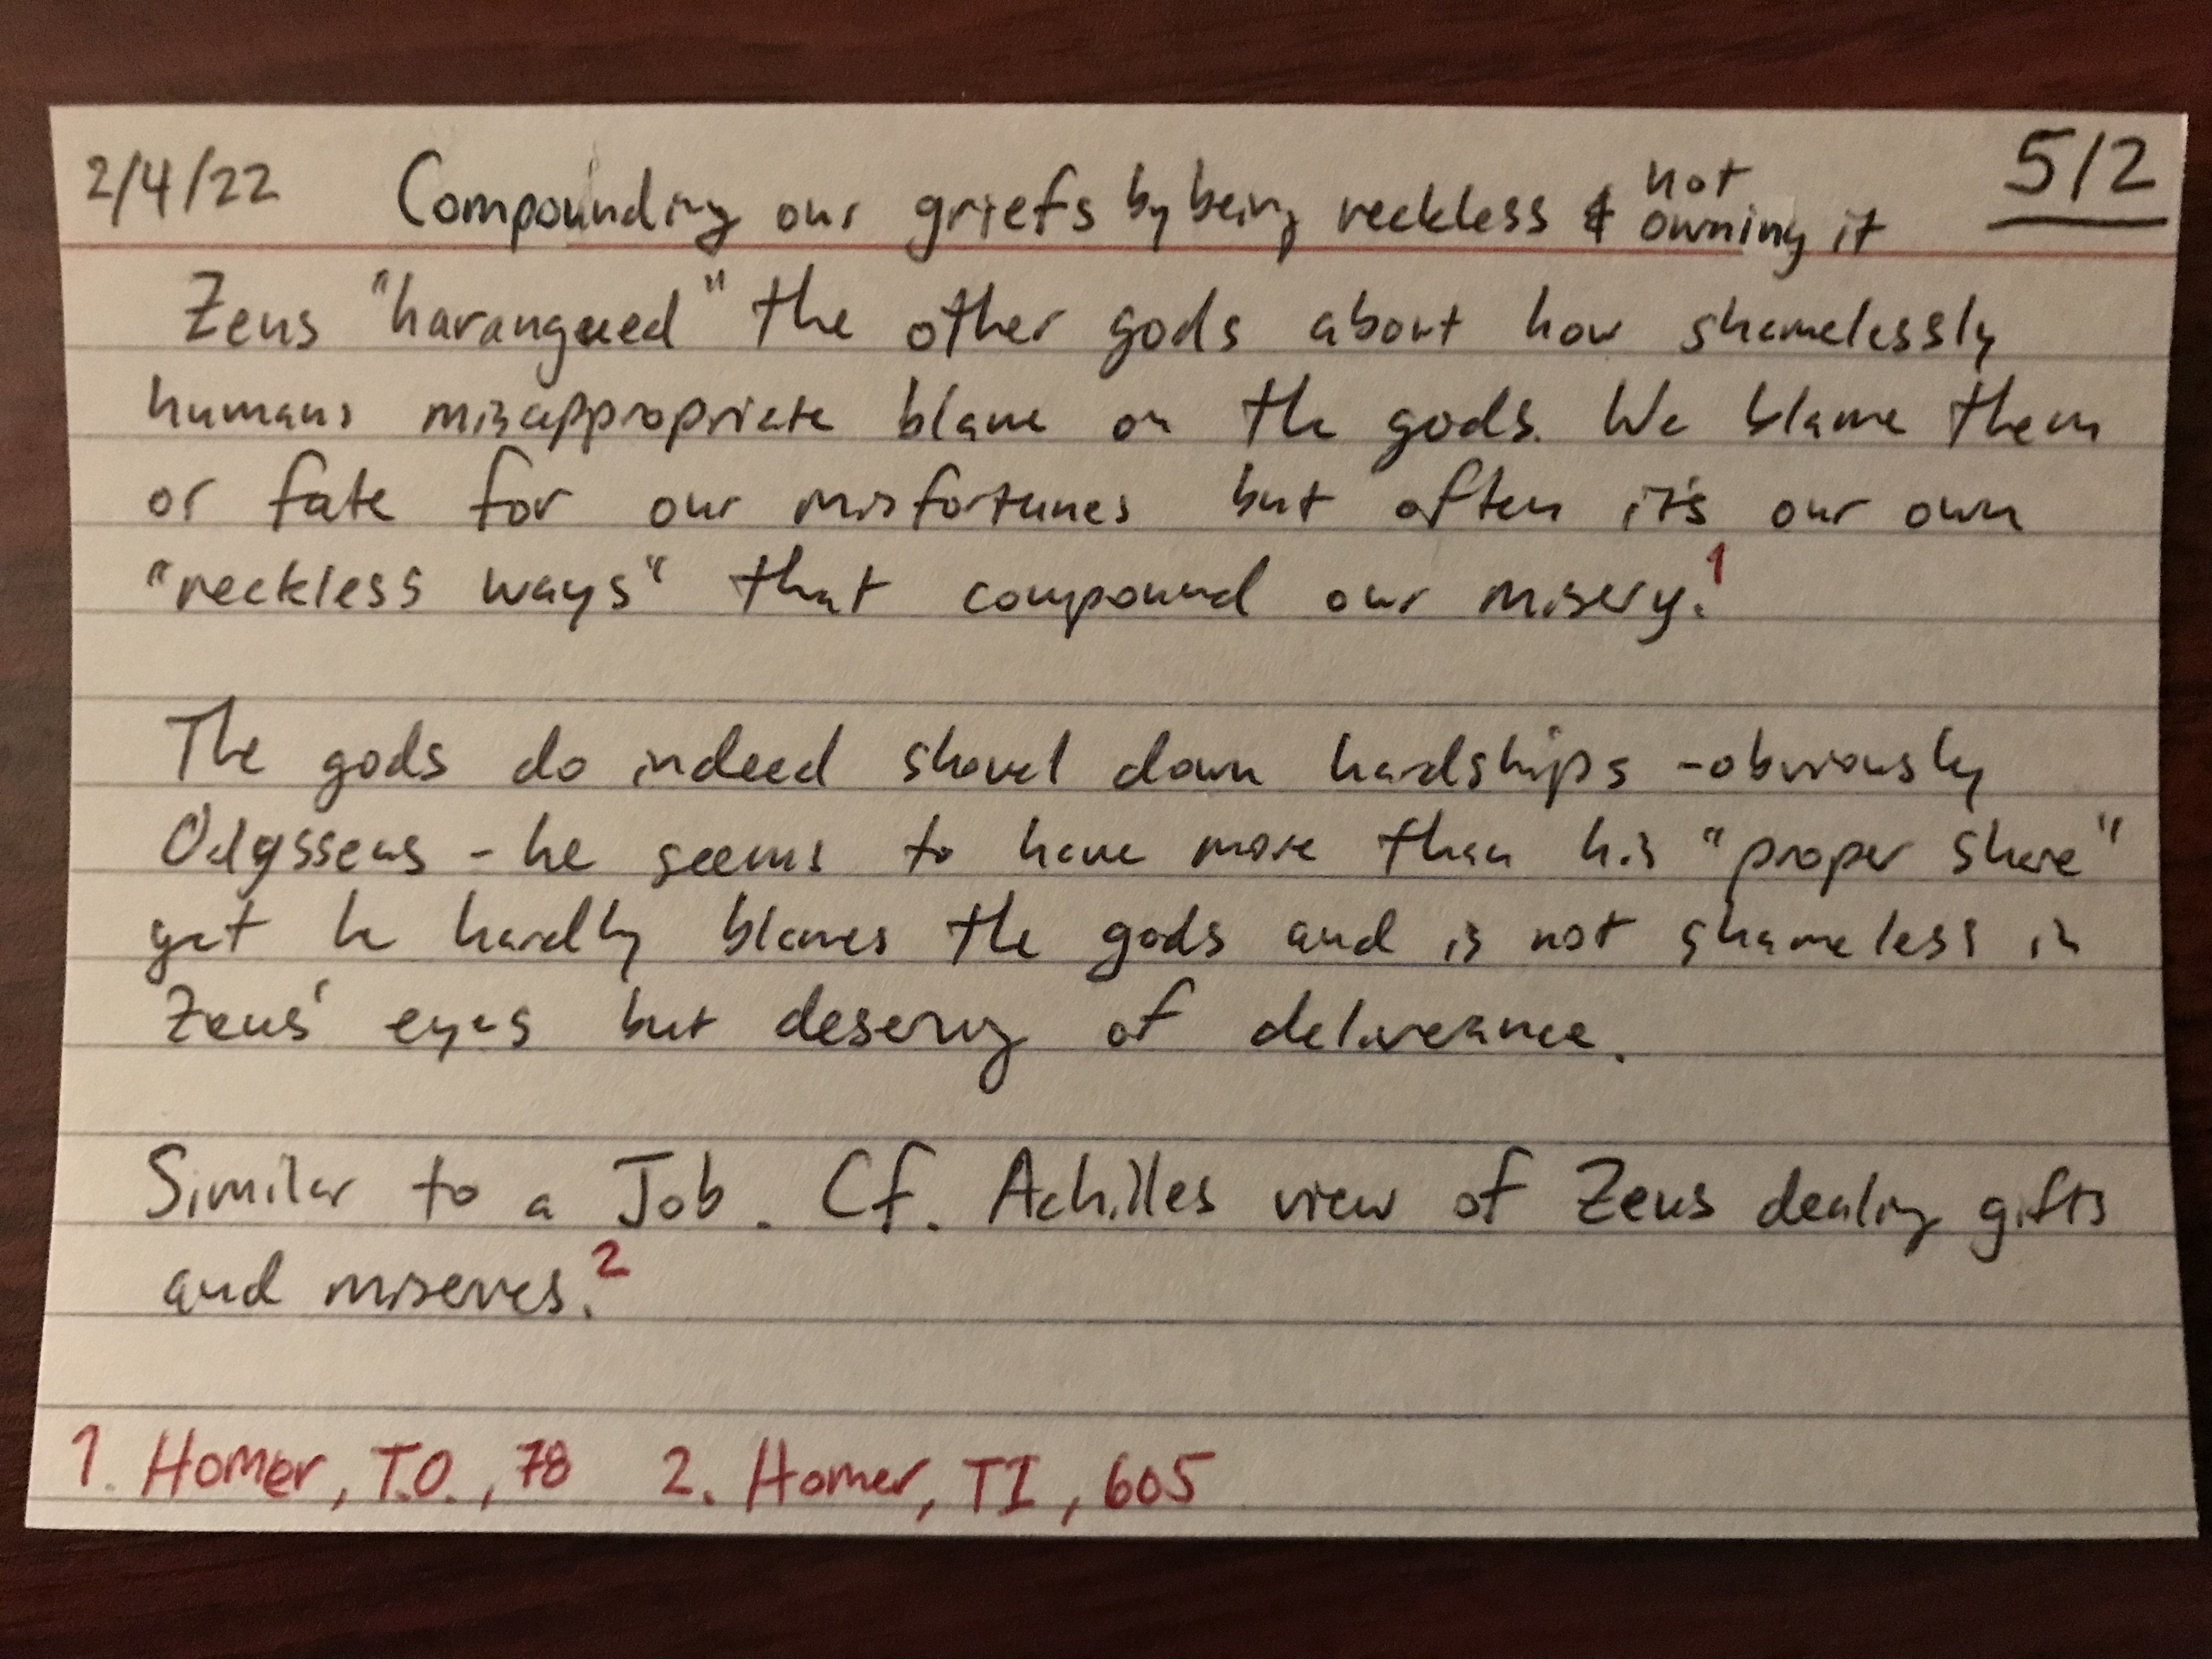 2/4/22 Compounding our griefs by being reckless & not owning it 5/2
Zeus "harangued" the other gods about how shamelessly
humans misappropriate blame on the gods. We blame them
or fate for our misfortunes but often it's our own
"reckless ways" that compound our misery.¹
The gods do indeed shovel down hardships - obviously
Odysseus - he seems to have more than his "proper share"
yet he hardly blames the gods and is not shameless in
Zeus' eyes but deserving of deliverance.
Similar to a Job. Cf. Achilles view of Zeus dealing gifts
and miseries.²
1. Homer, T.O., 78 2. Homer, TI, 605